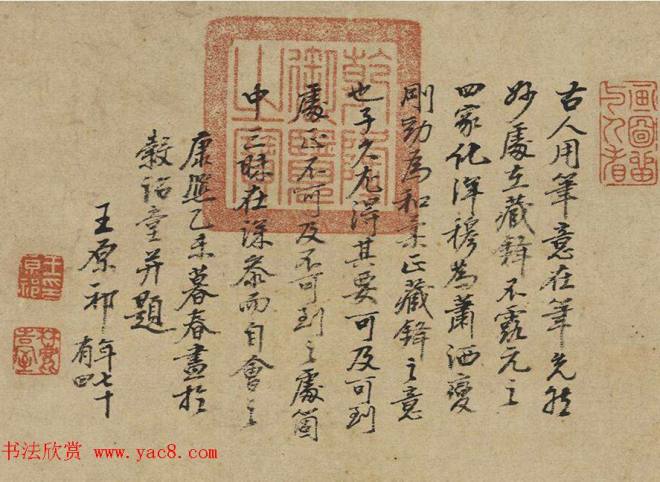 畫圖留與人看
古人用筆意在筆先然
妙處在藏鋒不露元之
四家化渾穆為蕭洒變
剛勁為和柔正藏鋒之意
也子久尤得其要可及可到
處正不可及不可到之處箇
中三昧在深參而自會之
康熙乙未暮春畫於
穀詒堂并題
王原祁年七十有四
乾隆御覽之寶
书法欣赏 www.yac8.com